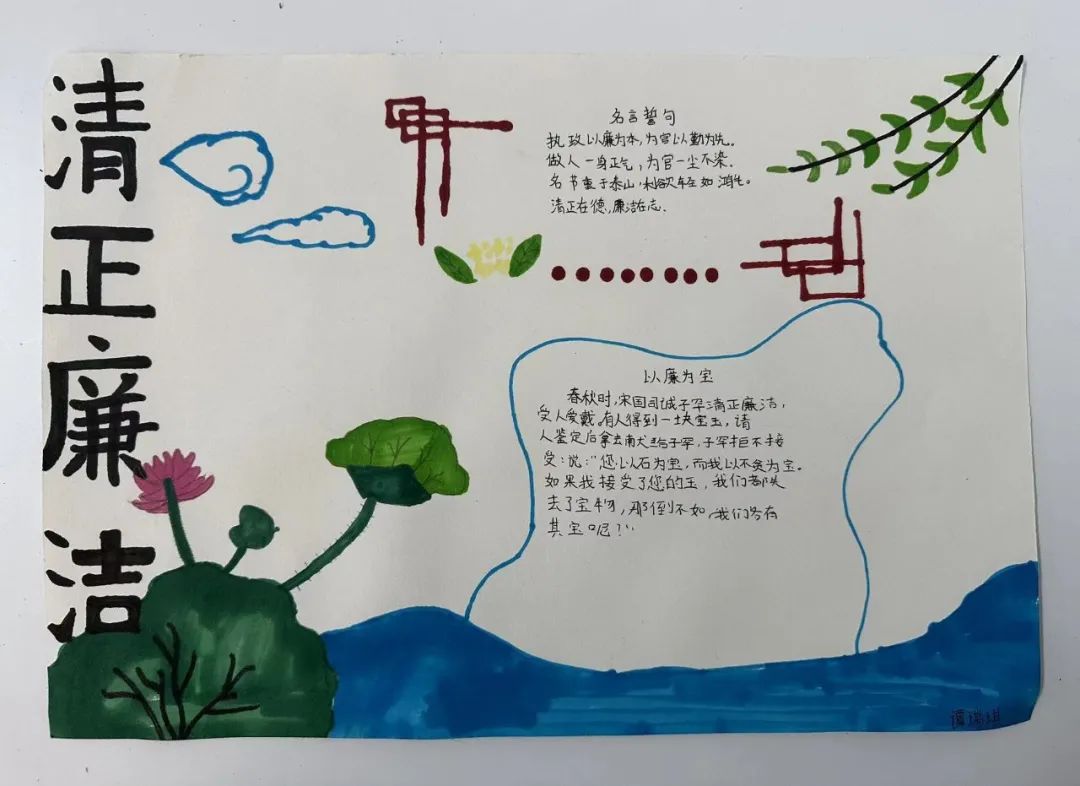 清正廉洁
名言誓句
执政以廉为本,为官以勤为先。
做人一身正气,为官一尘不染.
名节重于泰山,利欲轻如鸿毛。
清正在德,廉洁在志.
以廉为宝
春秋时,宋国司诚子罕清正廉洁,
受人爱戴。有人得到一块宝玉,请
人鉴定后拿去献给子罕,子罕拒不接
受:说:"您以石为宝,而我以不贪为宝。
如果我接受了您的玉,我们都失
去了宝物,那倒不如,我们各有
其宝呢?"